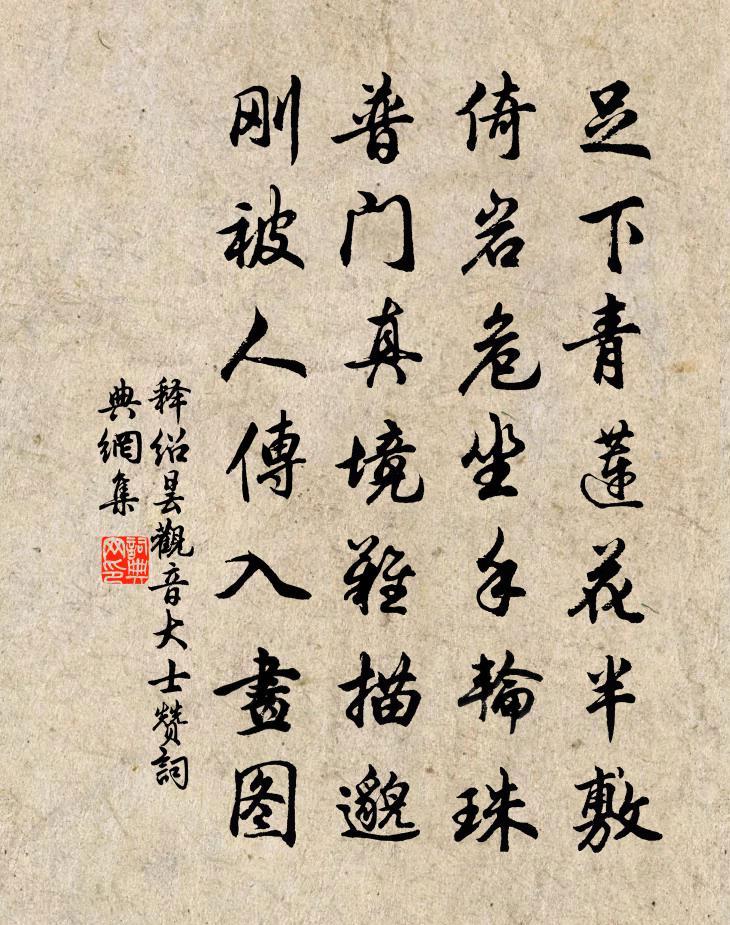 足下青莲花半敷
倚岩危坐手轮珠
普门真境难描邈
刚被人傳入畫图
释绍昙觀音大士赞詞
典網集
詞典网印